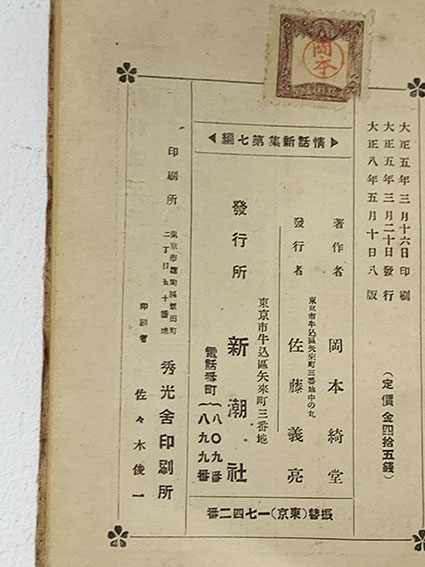 岡本
大正五年三月十六日印刷
大正五年三月二十日發行
大正八年五月十日八版
(定價金四拾五錢)
著作者 岡本綺堂
發行者 佐藤義亮
東京市牛込區矢來町三番地中の丸
情話新集第七編
發行所 新潮社
東京市牛込區矢來町三番地
電話番町 八〇九番
八九九番
振替(東京)一七四二番
印刷所 秀光舍印刷所
印刷者 佐々木俊一